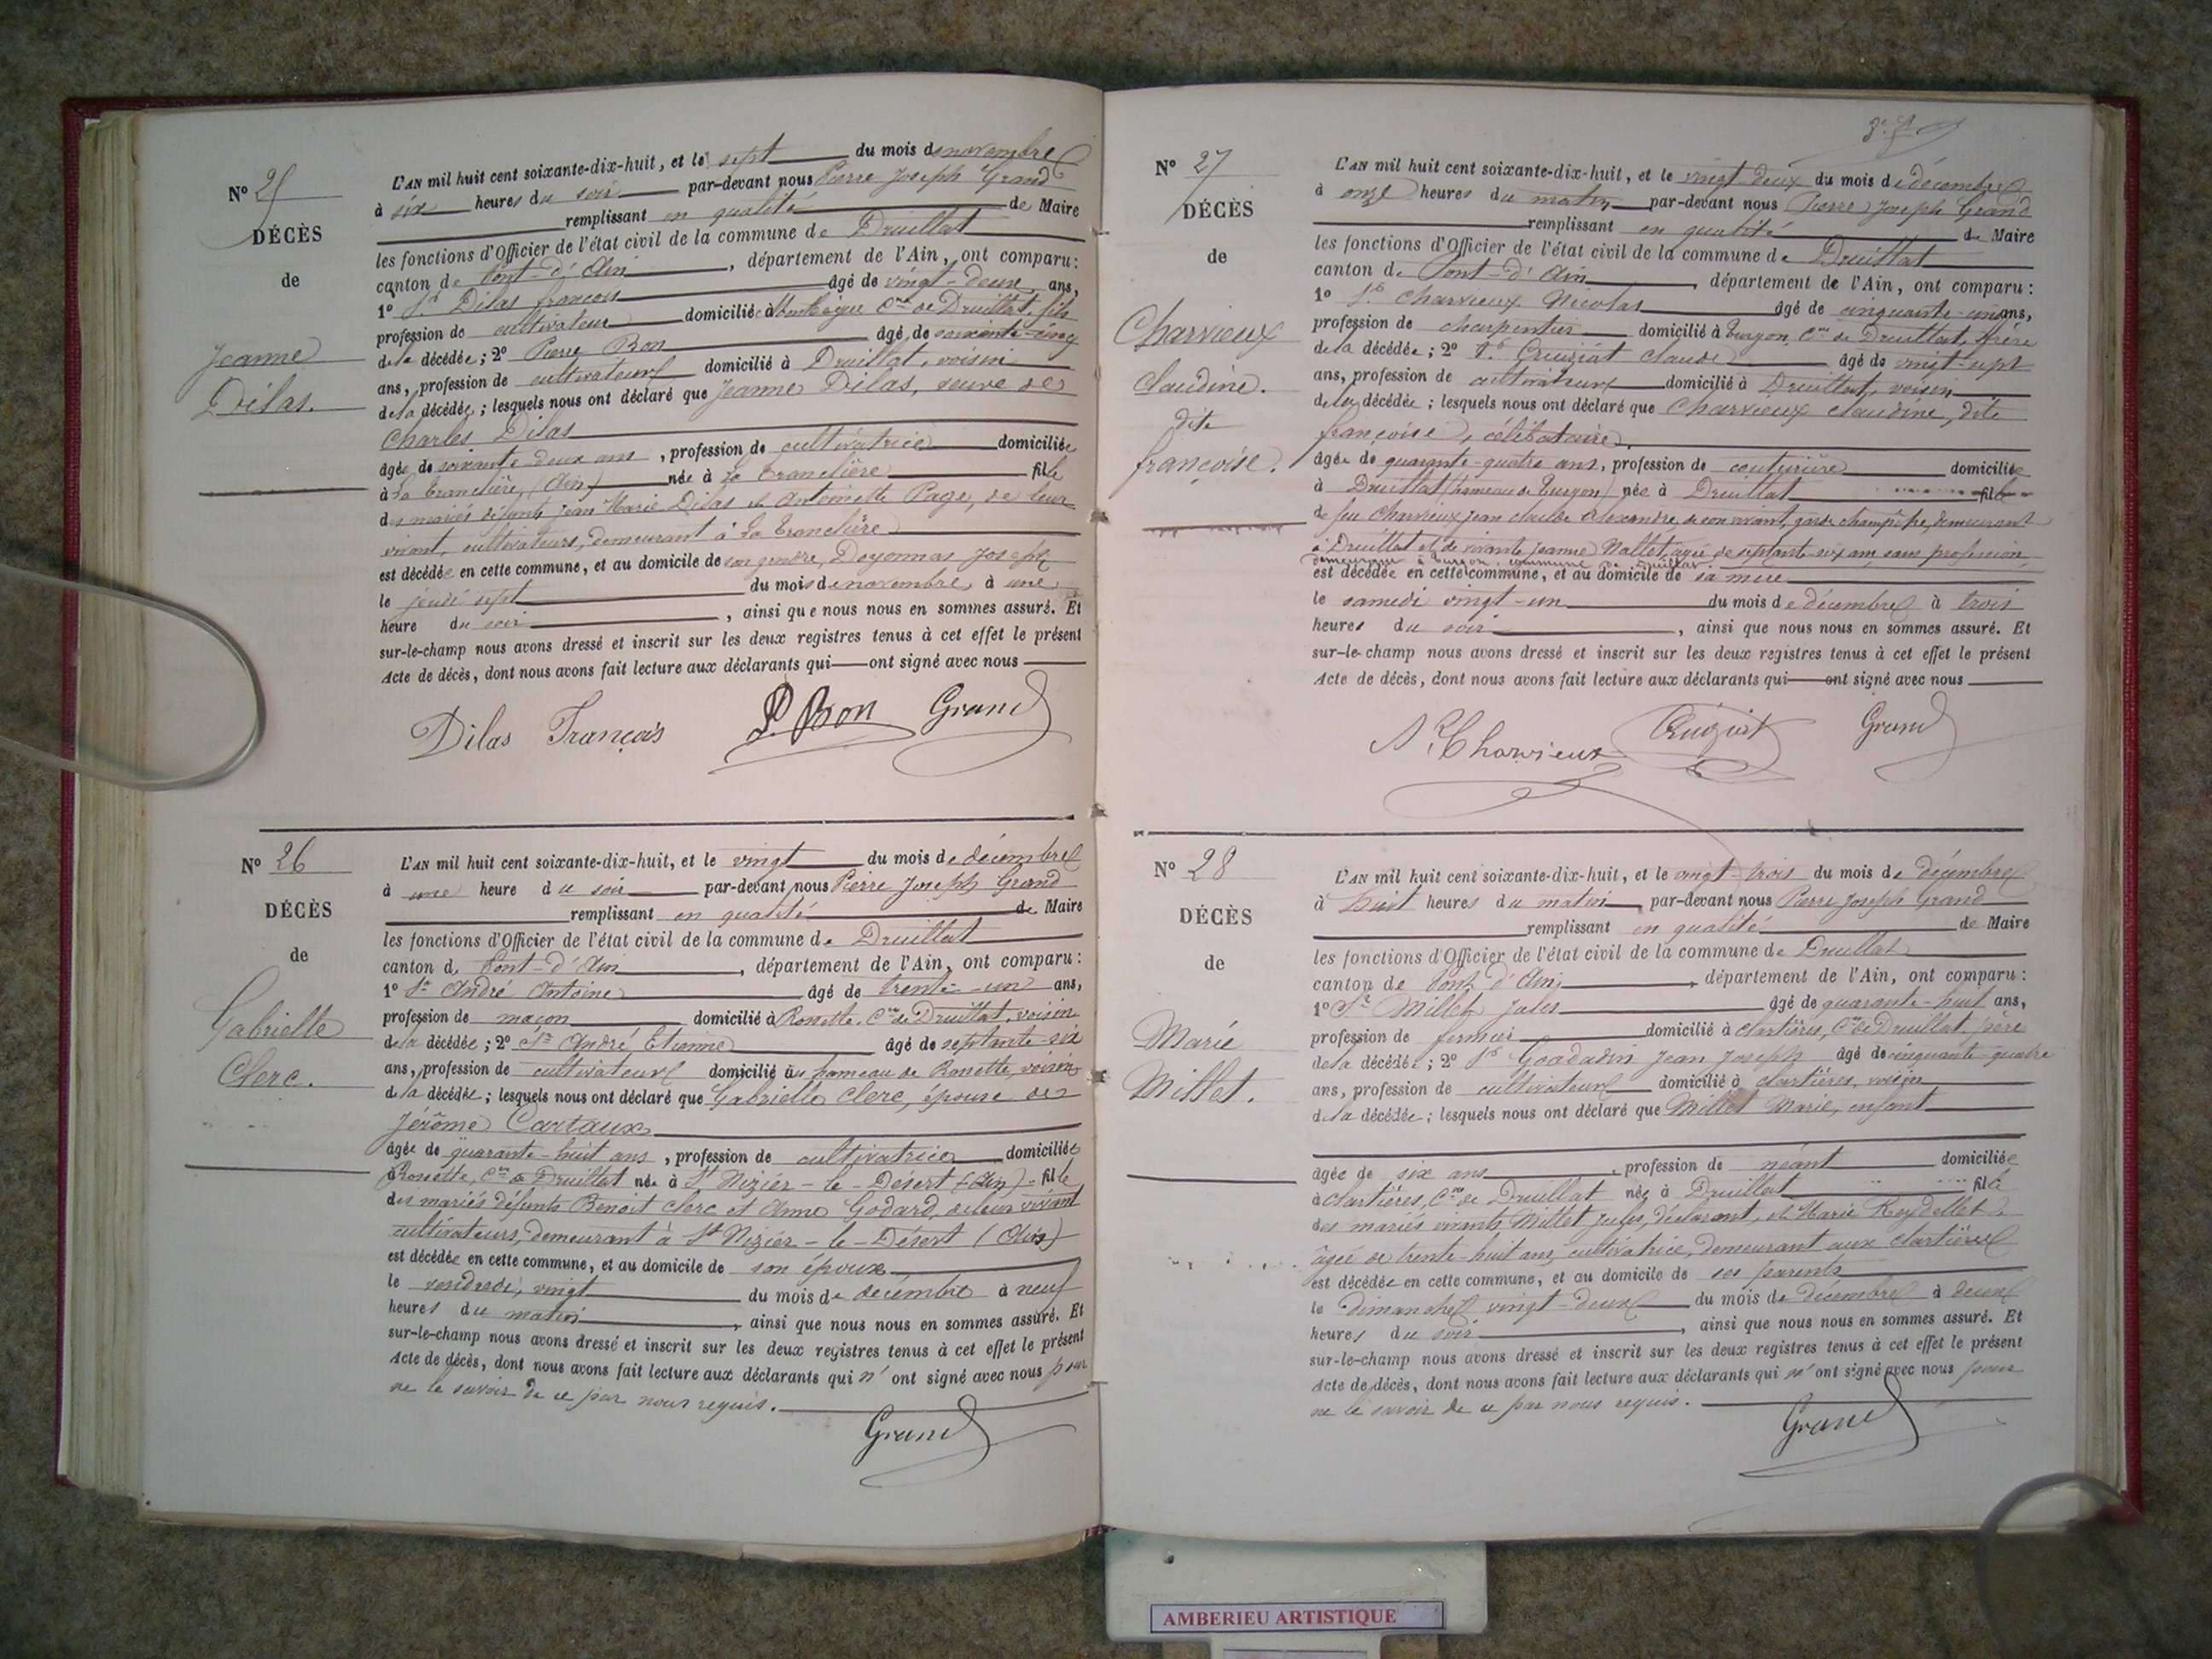 N° 25
DÉCÈS
de
Jeanne
Dilas.
L'AN mil huit cent soixante-dix-huit, et le sept du mois de novembre
à six heures du soir par-devant nous Pierre Joseph Grand
remplissant en qualité de Maire
les fonctions d'Officier de l'état civil de la commune de Druillat
canton de Pont-d'Ain, département de l'Ain, ont comparu:
1° Sr Dilas françois âgé de vingt-deux ans,
profession de cultivateur domicilié à Cne de Druillat, fils
de la décédée; 2° Pierre Bon âgé de soixante-cinq
ans, profession de cultivateur domicilié à Druillat, voisin
de la décédée; lesquels nous ont déclaré que Jeanne Dilas, veuve de
Charles Dilas
âgée de soixante-deux ans, profession de cultivatrice domiciliée
à La Tranclière, (Ain) née à La Tranclière fille
des mariés défunts Jean Marie Dilas et Antoinette Page, de leur
vivant, cultivateurs, demeurant à La Tranclière
est décédée en cette commune, et au domicile de son gendre, Doyonnas Joseph
le jeudi sept du mois de novembre à une
heure du soir, ainsi que nous nous en sommes assuré. Et
sur-le-champ nous avons dressé et inscrit sur les deux registres tenus à cet effet le présent
Acte de décès, dont nous avons fait lecture aux déclarants qui ont signé avec nous
Dilas François P. Bon Grand
N° 26
DÉCÈS
de
Gabrielle
Clerc.
L'AN mil huit cent soixante-dix-huit, et le vingt du mois de décembre
à une heure du soir par-devant nous Pierre Joseph Grand
remplissant en qualité de Maire
les fonctions d'Officier de l'état civil de la commune de Druillat
canton de Pont-d'Ain, département de l'Ain, ont comparu:
1° Sr André Antoine âgé de trente-un ans,
profession de maçon domicilié à Rossette, Cne de Druillat, voisin
de la décédée; 2° Sr André Etienne âgé de septante-six
ans, profession de cultivateur domicilié au hameau de Rossette, voisin
de la décédée; lesquels nous ont déclaré que Gabrielle Clerc, épouse de
Jérôme Cartaux
âgée de quarante-huit ans, profession de cultivatrice domiciliée
à Rossette, Cne de Druillat née à St Nizier-le-Désert (Ain) fille
des mariés défunts Benoit Clerc et Anne Godard, de leur vivant
cultivateurs, demeurant à St Nizier-le-Désert (Ain)
est décédée en cette commune, et au domicile de son époux
le vendredi, vingt du mois de décembre à neuf
heures du matin, ainsi que nous nous en sommes assuré. Et
sur-le-champ nous avons dressé et inscrit sur les deux registres tenus à cet effet le présent
Acte de décès, dont nous avons fait lecture aux déclarants qui n'ont signé avec nous pour
ne le savoir de ce par nous requis.
Grand
N° 27
DÉCÈS
de
Charvieux
Claudine.
dite
françoise.
L'AN mil huit cent soixante-dix-huit, et le vingt-deux du mois de décembre
à onze heures du matin par-devant nous Pierre Joseph Grand
remplissant en qualité de Maire
les fonctions d'Officier de l'état civil de la commune de Druillat
canton de Pont-d'Ain, département de l'Ain, ont comparu:
1° Sr Charvieux Nicolas âgé de cinquante-un ans,
profession de charpentier domicilié à Turgon, Cne de Druillat, frère
de la décédée; 2° Sr Cruiziat Claude âgé de vingt-sept
ans, profession de cultivateur domicilié à Druillat, voisin
de la décédée; lesquels nous ont déclaré que Charvieux Claudine, dite
françoise, célibataire.
âgée de quarante-quatre ans, profession de couturière domiciliée
à Druillat (hameau de Turgon) née à Druillat fille
de feu Charvieux Jean Claude Alexandre, de son vivant, garde champêtre, demeurant
à Druillat et de vivante Jeanne Nallet, âgée de septante-six ans, sans profession,
demeurant à Turgon, commune de Druillat
est décédée en cette commune, et au domicile de sa mère
le samedi vingt-un du mois de décembre à trois
heures du soir, ainsi que nous nous en sommes assuré. Et
sur-le-champ nous avons dressé et inscrit sur les deux registres tenus à cet effet le présent
Acte de décès, dont nous avons fait lecture aux déclarants qui ont signé avec nous
N. Charvieux Cruiziat Grand
N° 28
DÉCÈS
de
Marie
Millet.
L'AN mil huit cent soixante-dix-huit, et le vingt-trois du mois de décembre
à huit heures du matin par-devant nous Pierre Joseph Grand
remplissant en qualité de Maire
les fonctions d'Officier de l'état civil de la commune de Druillat
canton de Pont d'Ain, département de l'Ain, ont comparu:
1° Sr Millet Jules âgé de quarante-huit ans,
profession de fermier domicilié à Clartières, Cne de Druillat, père
de la décédée; 2° Sr Jean Joseph âgé de cinquante-quatre
ans, profession de cultivateur domicilié à Clartières, voisin
de la décédée; lesquels nous ont déclaré que Millet Marie, enfant
âgée de six ans, profession de néant domiciliée
à Clartières, Cne de Druillat née à Druillat fille
des mariés vivants Millet Jules, déclarant, et Marie Reydellet
âgée de trente-huit ans, cultivatrice, demeurant aux Clartières
est décédée en cette commune, et au domicile de ses parents
le dimanche vingt-deux du mois de décembre à deux
heures du soir, ainsi que nous nous en sommes assuré. Et
sur-le-champ nous avons dressé et inscrit sur les deux registres tenus à cet effet le présent
Acte de décès, dont nous avons fait lecture aux déclarants qui n'ont signé avec nous pour
ne le savoir de ce par nous requis.
Grand
AMBERIEU ARTISTIQUE